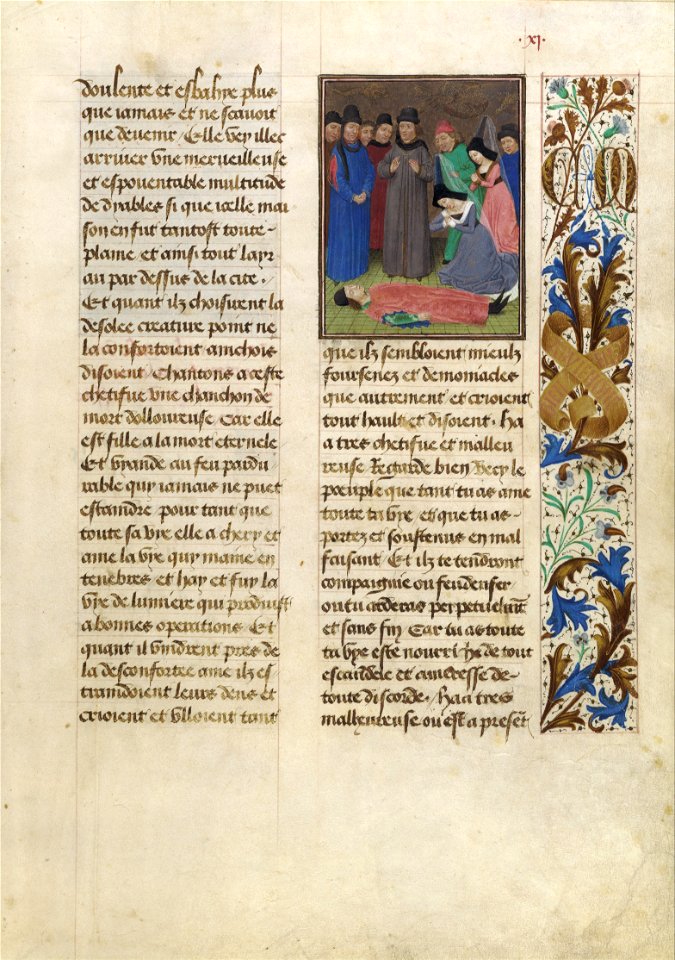 ·xj·
doulente et esbahye plus
que iamais et ne scauoit
que deuenir / Elle vey illec
arriuer vne merueilleuse
et espouentable multitude
de dyables si que icelle mai
son en fut tantost toute-
plaine et ainsi tout layr
au par dessus de la cite.
Et quant ilz choisirent la
desolee creature point ne
la confortoient ainchois
disoient / Chantons a ceste
chetifue vne chanchon de
mort dolloureuse Car elle
est fille a la mort eternele
Et viande au feu pardu
rable quy iamais ne puet
estaindre pour tant que
toute sa vye elle a chery et
ame la vye quy maine en
tenebres et hay et fuy la
vye de lumiere qui produist
a bonnes operations Et
quant il vindrent pres de
la desconfortee ame ilz es
traindoient leurs dens et
crioient et vlloient tant
que ilz sembloient mieulz
foursenez et demoniacles
que autrement et crioient
tout hault et disoient. Ha
a tres chetifue et malleu
reuse Regarde bien Vecy le
peuple que tant tu as ame
toute ta vye et que tu as-
portez et soustenus en mal
faisant Et ilz te tendront
compaignie ou feu denfer
ou tu arderas perpetuelment
et sans fin Car tu as toute
ta vye este nourri he de tout
escandele et de
toute discorde. Ha a tres
malheureuse ou est a present